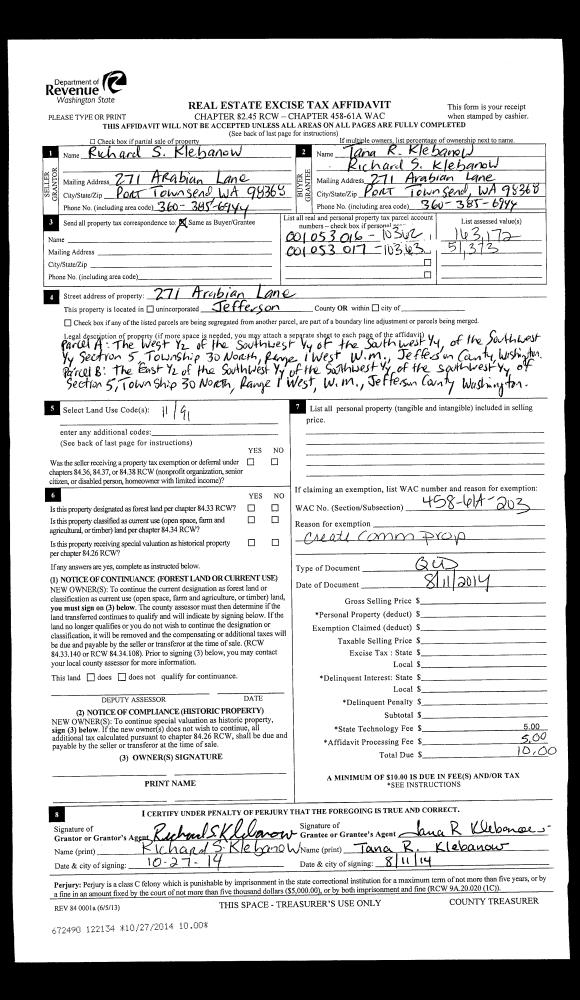 Department of
Revenue
Washington State
PLEASE TYPE OR PRINT
REAL ESTATE EXCISE TAX AFFIDAVIT
CHAPTER 82.45 RCW – CHAPTER 458-61A WAC
This form is your receipt
when stamped by cashier.
THIS AFFIDAVIT WILL NOT BE ACCEPTED UNLESS ALL AREAS ON ALL PAGES ARE FULLY COMPLETED
(See back of last page for instructions)
Check box if partial sale of property
If multiple owners, list percentage of ownership next to name.
1 Name Richard S. Klebanow
SELLER GRANTOR
Mailing Address 271 Arabian Lane
City/State/Zip Port Townsend, WA 98368
Phone No. (including area code) 360-385-6944
2 Name Tana R. Klebanow
Richard S. Klebanow
BUYER GRANTEE
Mailing Address 271 Arabian Lane
City/State/Zip Port Townsend, WA 98368
Phone No. (including area code) 360-385-6944
3 Send all property tax correspondence to: Same as Buyer/Grantee
Name
Mailing Address
City/State/Zip
Phone No. (including area code)
List all real and personal property tax parcel account
numbers – check box if personal
001 053 016 - 10362
001 053 017 - 10363
List assessed value(s)
163,172
51,373
4 Street address of property: 271 Arabian Lane
This property is located in unincorporated Jefferson County OR within city of
Check box if any of the listed parcels are being segregated from another parcel, are part of a boundary line adjustment or parcels being merged.
Legal description of property (if more space is needed, you may attach a separate sheet to each page of the affidavit)
Parcel A: The West 1/2 of the Southwest 1/4 of the Southwest 1/4, of the Southwest
1/4 Section 5, Township 30 North, Range 1 West W.m., Jefferson County, Washington.
Parcel B: The East 1/2 of the Southwest 1/4 of the Southwest 1/4 of the Southwest 1/4 of
Section 5, Township 30 North, Range 1 West, W.m., Jefferson County Washington.
5 Select Land Use Code(s):
11/91
enter any additional codes:
(See back of last page for instructions)
YES NO
Was the seller receiving a property tax exemption or deferral under
chapters 84.36, 84.37, or 84.38 RCW (nonprofit organization, senior
citizen, or disabled person, homeowner with limited income)?
6 YES NO
Is this property designated as forest land per chapter 84.33 RCW?
Is this property classified as current use (open space, farm and
agricultural, or timber) land per chapter 84.34 RCW?
Is this property receiving special valuation as historical property
per chapter 84.26 RCW?
If any answers are yes, complete as instructed below.
(1) NOTICE OF CONTINUANCE (FOREST LAND OR CURRENT USE)
NEW OWNER(S): To continue the current designation as forest land or
classification as current use (open space, farm and agriculture, or timber) land,
you must sign on (3) below. The county assessor must then determine if the
land transferred continues to qualify and will indicate by signing below. If the
land no longer qualifies or you do not wish to continue the designation or
classification, it will be removed and the compensating or additional taxes will
be due and payable by the seller or transferor at the time of sale. (RCW
84.33.140 or RCW 84.34.108). Prior to signing (3) below, you may contact
your local county assessor for more information.
This land does does not qualify for continuance.
DEPUTY ASSESSOR DATE
(2) NOTICE OF COMPLIANCE (HISTORIC PROPERTY)
NEW OWNER(S): To continue special valuation as historic property,
sign (3) below. If the new owner(s) does not wish to continue, all
additional tax calculated pursuant to chapter 84.26 RCW, shall be due and
payable by the seller or transferor at the time of sale.
(3) OWNER(S) SIGNATURE
PRINT NAME
7 List all personal property (tangible and intangible) included in selling
price.
If claiming an exemption, list WAC number and reason for exemption:
WAC No. (Section/Subsection) 458-61A-203
Reason for exemption
Create Comm Prop
Type of Document QCD
Date of Document 8/11/2014
Gross Selling Price $
*Personal Property (deduct) $
Exemption Claimed (deduct) $
Taxable Selling Price $
Excise Tax : State $
Local $
*Delinquent Interest: State $
Local $
*Delinquent Penalty $
Subtotal $
*State Technology Fee $ 5.00
*Affidavit Processing Fee $ 5.00
Total Due $ 10.00
A MINIMUM OF $10.00 IS DUE IN FEE(S) AND/OR TAX
*SEE INSTRUCTIONS
8 I CERTIFY UNDER PENALTY OF PERJURY THAT THE FOREGOING IS TRUE AND CORRECT.
Signature of
Grantor or Grantor's Agent Richard S Klebanow
Name (print) Richard S. Klebanow
Date & city of signing: 10-27-14
Signature of
Grantee or Grantee's Agent Tana R Klebanow
Name (print) Tana R. Klebanow
Date & city of signing: 8/11/14
Perjury: Perjury is a class C felony which is punishable by imprisonment in the state correctional institution for a maximum term of not more than five years, or by
a fine in an amount fixed by the court of not more than five thousand dollars ($5,000.00), or by both imprisonment and fine (RCW 9A.20.020 (1C)).
REV 84 0001a (6/5/13)
THIS SPACE - TREASURER'S USE ONLY
COUNTY TREASURER
672490 122134 *10/27/2014 10.00*